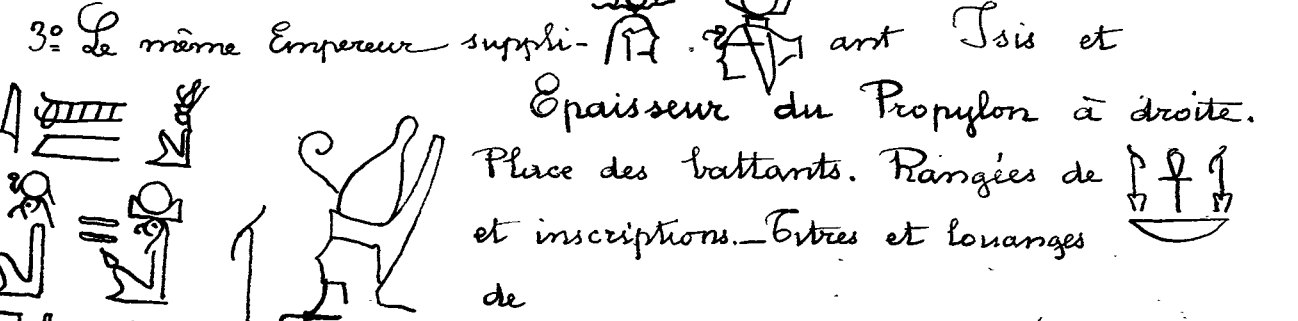 3º Le même Empereur suppli- . ant Isis et
Epaisseur du Propylon à droite.
Place des battants. Rangées de
et inscriptions._Titres et louanges
de